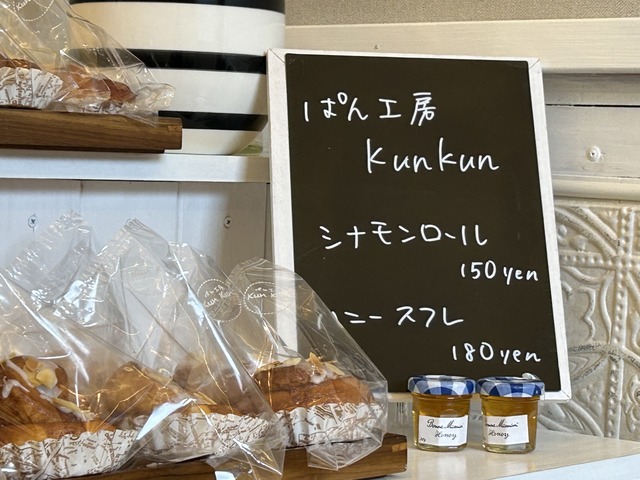 ぱん工房
kunkun
シナモンロール
150yen
ニースフレ
180yen
Bonne Maman
Honey
Bonne Maman
Honey